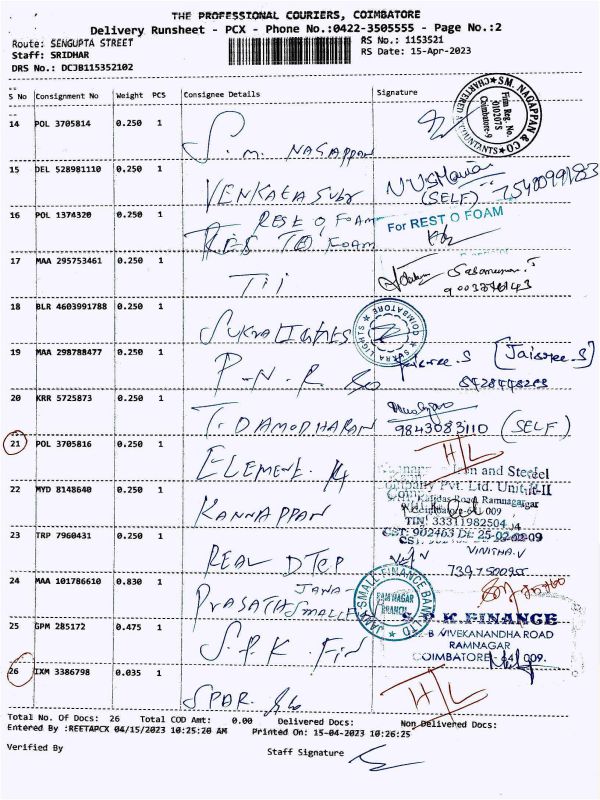 THE PROFESSIONAL COURIERS, COIMBATORE
Delivery Runsheet - PCX - Phone No.:0422-3505555 - Page No.:2
Route: SENGUPTA STREET RS No.: 11S3S21
Staff: SRIDHAR RS Date: 15-Apr-2023
DRS No.: DCJB115352102
S No Consignment No Weight PCS Consignee Details Signature
14 POL 3705814 0.250 1
S. m. NAGAPPAN
SM. NAGAPPAN & CO
CHARTERED ACCOUNTANTS
Firm Reg. No.
Coimbatore-9
15 DEL 528981110 0.250 1
VENKATA Subr
(SELF) 7540099183
16 POL 1374320 0.250 1
REST O FOAM
For REST O FOAM
17 MAA 295753461 0.250 1
Tii
18 BLR 4603991788 0.250 1
SUKRA LIGHTES
SUKRA LIGHTS COIMBATORE
19 MAA 298788477 0.250 1
P-N.R. &co
[Jaisree.S]
20 KRR 5725873 0.250 1
T. DAMODHARAN
9843083110 (SELF)
21 POL 3705816 0.250 1
ELEMENT.
H/L
Iron and Steel
Company Pvt. Ltd. Unit-II
Kalidas Road, Ramnagar
Coimbatore-641 009
TIN: 33311982504
CST: 902463 Dt: 25-02-09
22 MYD 8148640 0.250 1
KANNAPPAN
23 TRP 7960431 0.250 1
REAL DTCP
VINISHA.V
24 MAA 101786610 0.830 1
JANA-
PRASATA SMALL F
JANA SMALL FINANCE BANK LTD
RAM NAGAR
BRANCH
25 GPM 285172 0.475 1
S.P.K Fin
S.P.K.FINANCE
B VIVEKANANDHA ROAD
RAMNAGAR
COIMBATORE - 641 009.
26 IXM 3386798 0.035 1
SPAR. &co
H/L
Total No. Of Docs: 26 Total COD Amt: 0.00 Delivered Docs: Non Delivered Docs:
Entered By :REETAPCX 04/15/2023 10:25:20 AM Printed On: 15-04-2023 10:26:25
Verified By Staff Signature